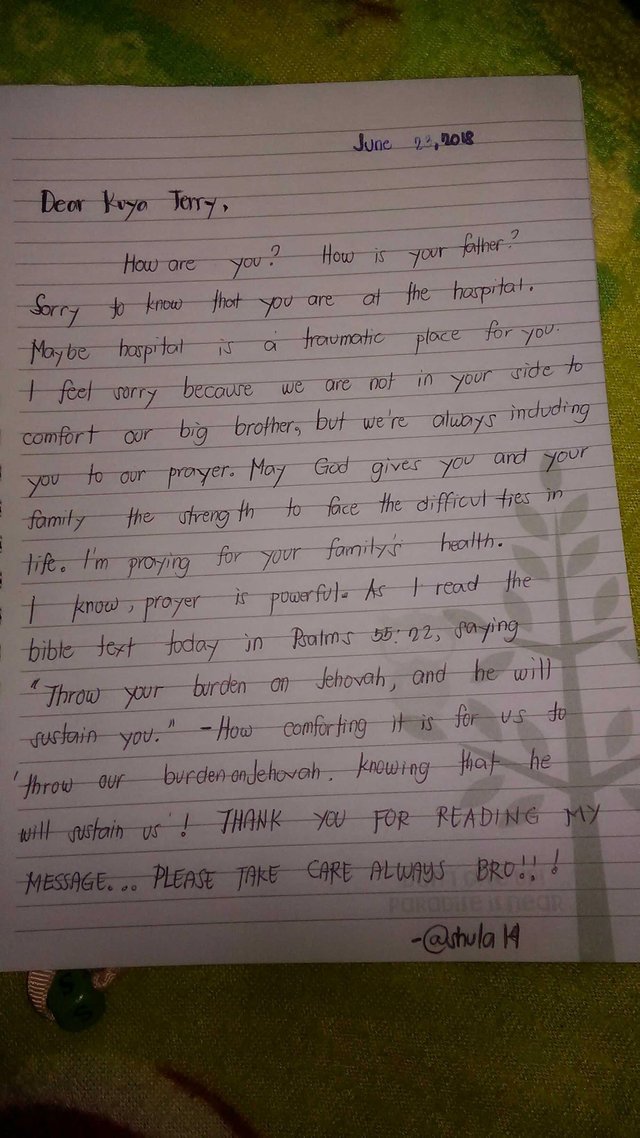 June 23, 2018
Dear Kuya Terry,
How are you? How is your father?
Sorry to know that you are at the hospital.
Maybe hospital is a traumatic place for you.
I feel sorry because we are not in your side to
comfort our big brother, but we're always including
you to our prayer. May God gives you and your
family the strength to face the difficulties in
life. I'm praying for your family's health.
I know, prayer is powerful. As I read the
bible text today in Psalms 55:22, saying
"Throw your burden on Jehovah, and he will
sustain you." - How comforting it is for us to
'throw our burden on Jehovah. knowing that he
will sustain us'! THANK YOU FOR READING MY
MESSAGE... PLEASE TAKE CARE ALWAYS BRO!!!
paradise is near
-@shula